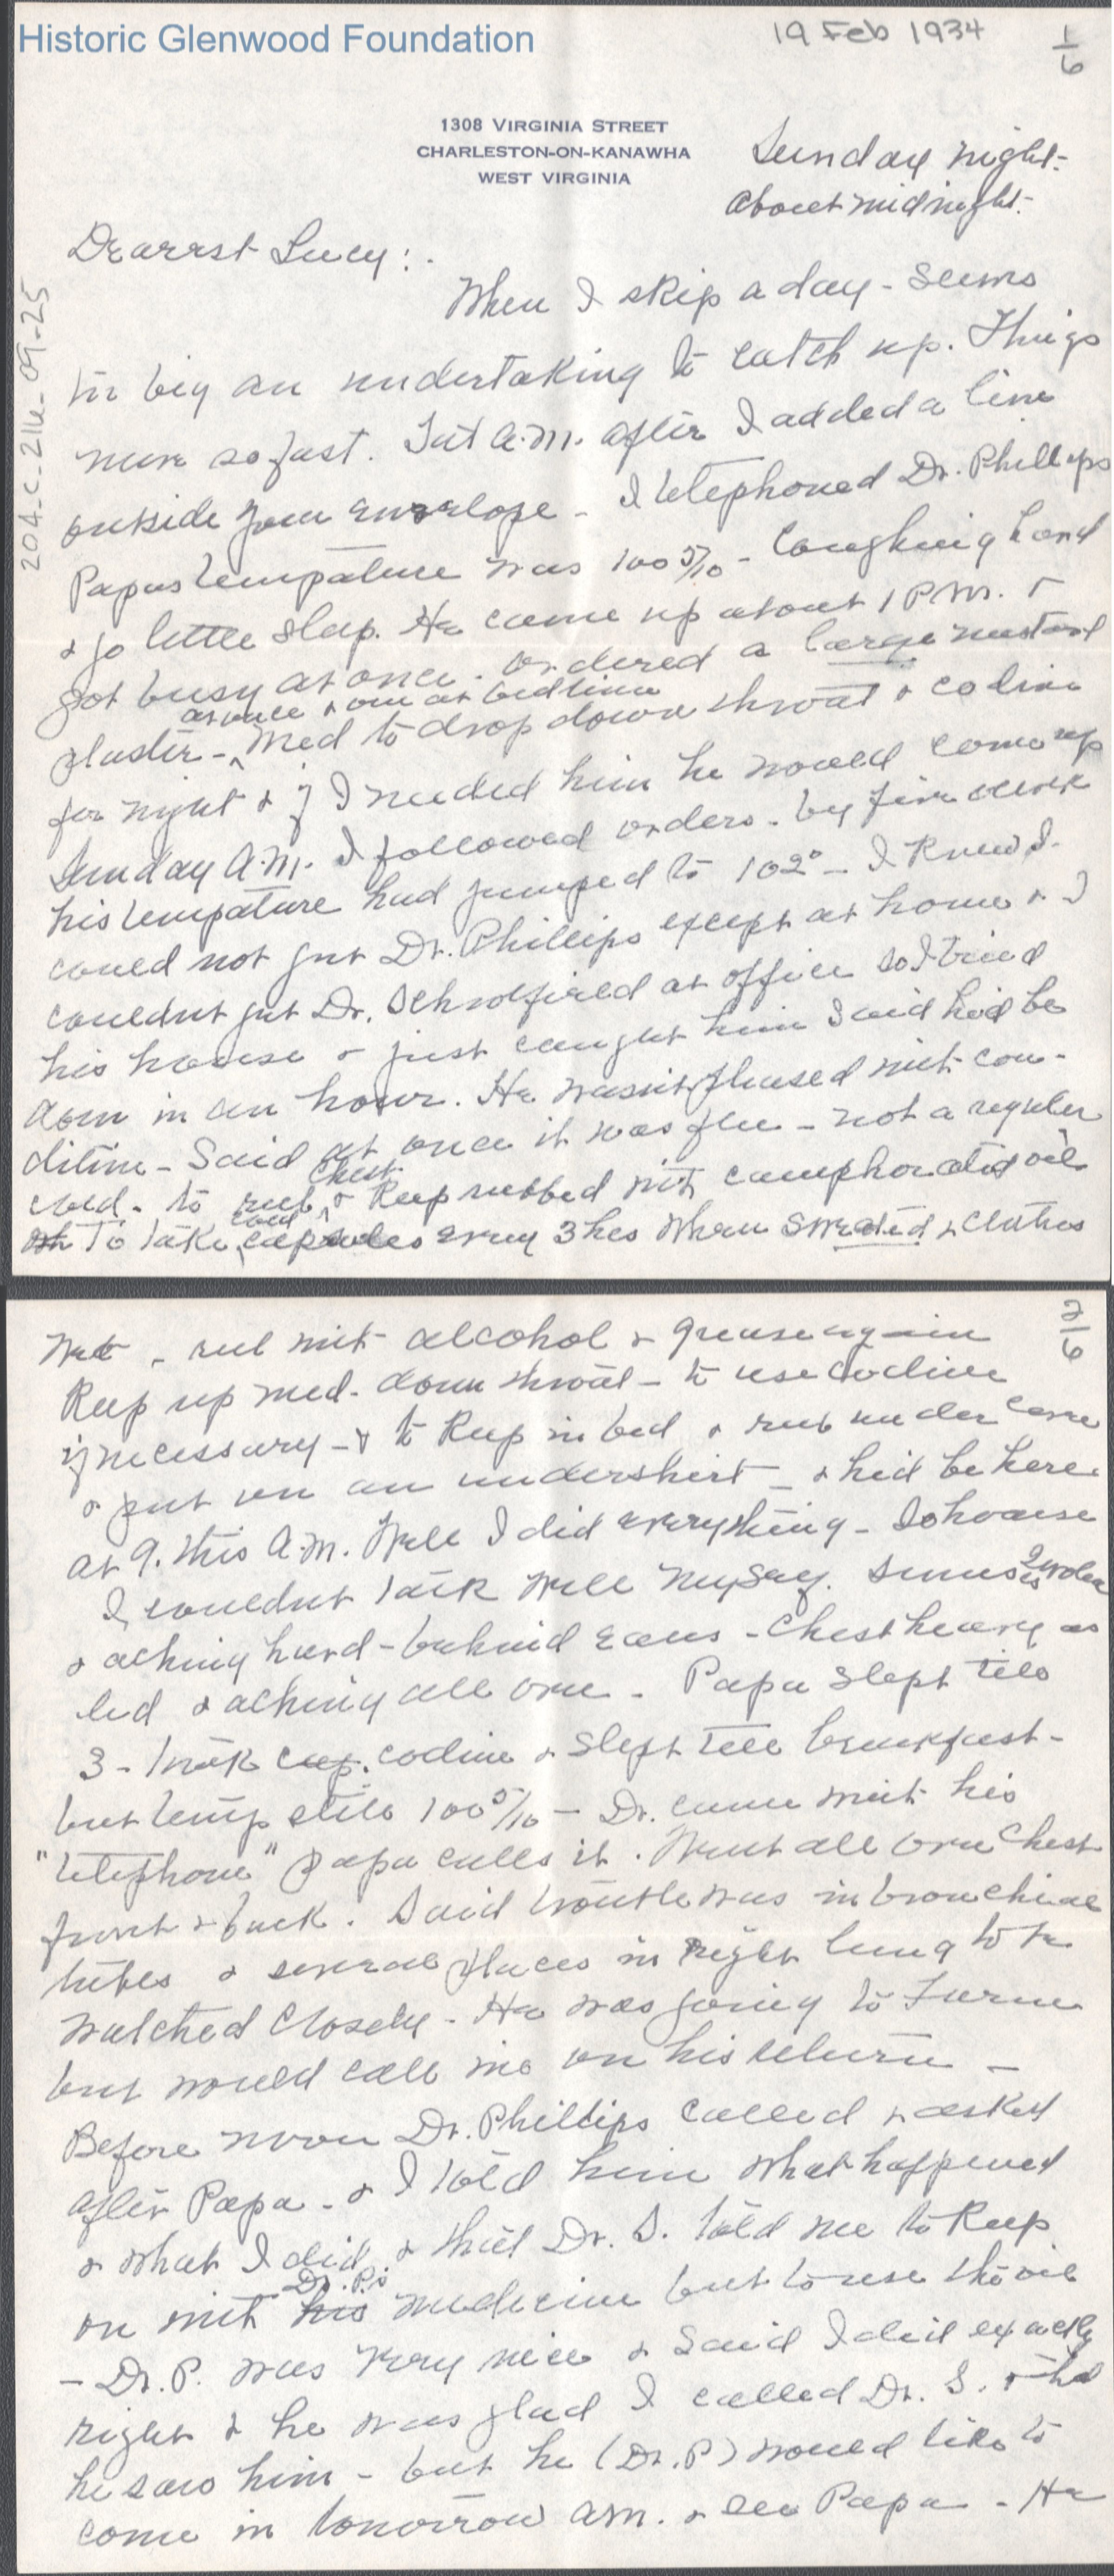 Historic Glenwood Foundation
19 Feb 1934
1/6
1308 VIRGINIA STREET
CHARLESTON-ON-KANAWHA
WEST VIRGINIA
Sunday night-
about midnight.
204-c-216-09-25
Dearest Lucy:.
When I skip a day - seems
too big an undertaking to catch up. Things
move so fast. Sat a.m. after I added a line
outside your envelope - I telephoned Dr. Phillips
Papas tempature was 100 5/10 - Coughing hard
& so little sleep. He came up about 1 P.M. &
got busy at once. ordered a large mustard
at once & one at bedtime
plaster - ^ med to drop down throat & codine
for night & if I needed him he would come up
Sunday A.M. I followed orders - by five oclock
his tempature had jumped to 102° - I knew I
could not get Dr. Phillips except at home & I
couldnt get Dr. at office so I tried
his house & just caught him said he'd be
down in an hour. He wasnt pleased with con-
dition - Said at once it was flu - not a regular
chest
cold - to rub ^ & keep rubbed with camphorated oil
cold
To take ^ capsules every 3 hrs when sweated & clothes
2/6
wet - rub with alcohol & grease again
Keep up med. down throat - to use Codine
if necessary - & to keep in bed & rub under cover
& put on an undershirt - & he'd be here
at 9. this a.m. Well I did everything - So hoarse
I couldnt talk well myself. Sinuses swolen
& aching hard - behind ears - Chest heavy as
led & aching all over - Papa slept till
3 - took cap. codine & slept till breakfast -
but temp still 100 5/10 - Dr. came with his
"telephone" Papa calls it. Went all over Chest
front & back. Said trouble was in bronchial
tubes & several places in right lung to be
watched closely - He was going to
but would call me on his return -
Before noon Dr. Phillips called & asked
after Papa - & I told him what happened
& what I did, & that Dr. S. told me to keep
Dr. P's
on with his medicine but to use the oil
- Dr. P. was very nice & said I did exactly
right & he was glad I called Dr. S. &
he saw him - but he (Dr. P) would like to
come in tomorrow am. & see Papa - He